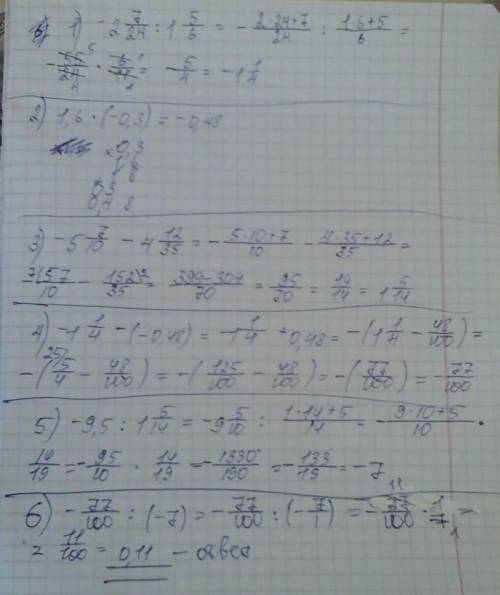 1) -2 7/24 : 1 5/6 = - (2·24+7)/24 : (1·6+5)/6 =
- 55/24 · 6/11 = - 5/4 = -1 1/4
2) 1,6 · (-0,3) = -0,48
× 0,3
0,48
3) -5 7/10 - 4 12/35 = - (5·10+7)/10 - (4·35+12)/35 =
7(57/10 - 152)2/35 = (399-304)/70 = 95/70 = 19/14 = 1 5/14
4) -1 1/4 - (-0,48) = -1 1/4 + 0,48 = -(1 1/4 - 48/100) =
-(25/5/4 - 48/100) = -(125/100 - 48/100) = -(77/100) = - 77/100
5) -9,5 : 1 5/14 = -9 5/10 : (1·14+5)/14 = - (9·10+5)/10 ·
14/19 = - 95/10 · 14/19 = - 1330/190 = - 133/19 = -7
6) - 77/100 : (-7) = - 77/100 : (- 7/1) = - 77/100 · 1/7 =
= 11/100 = 0,11 - ответ